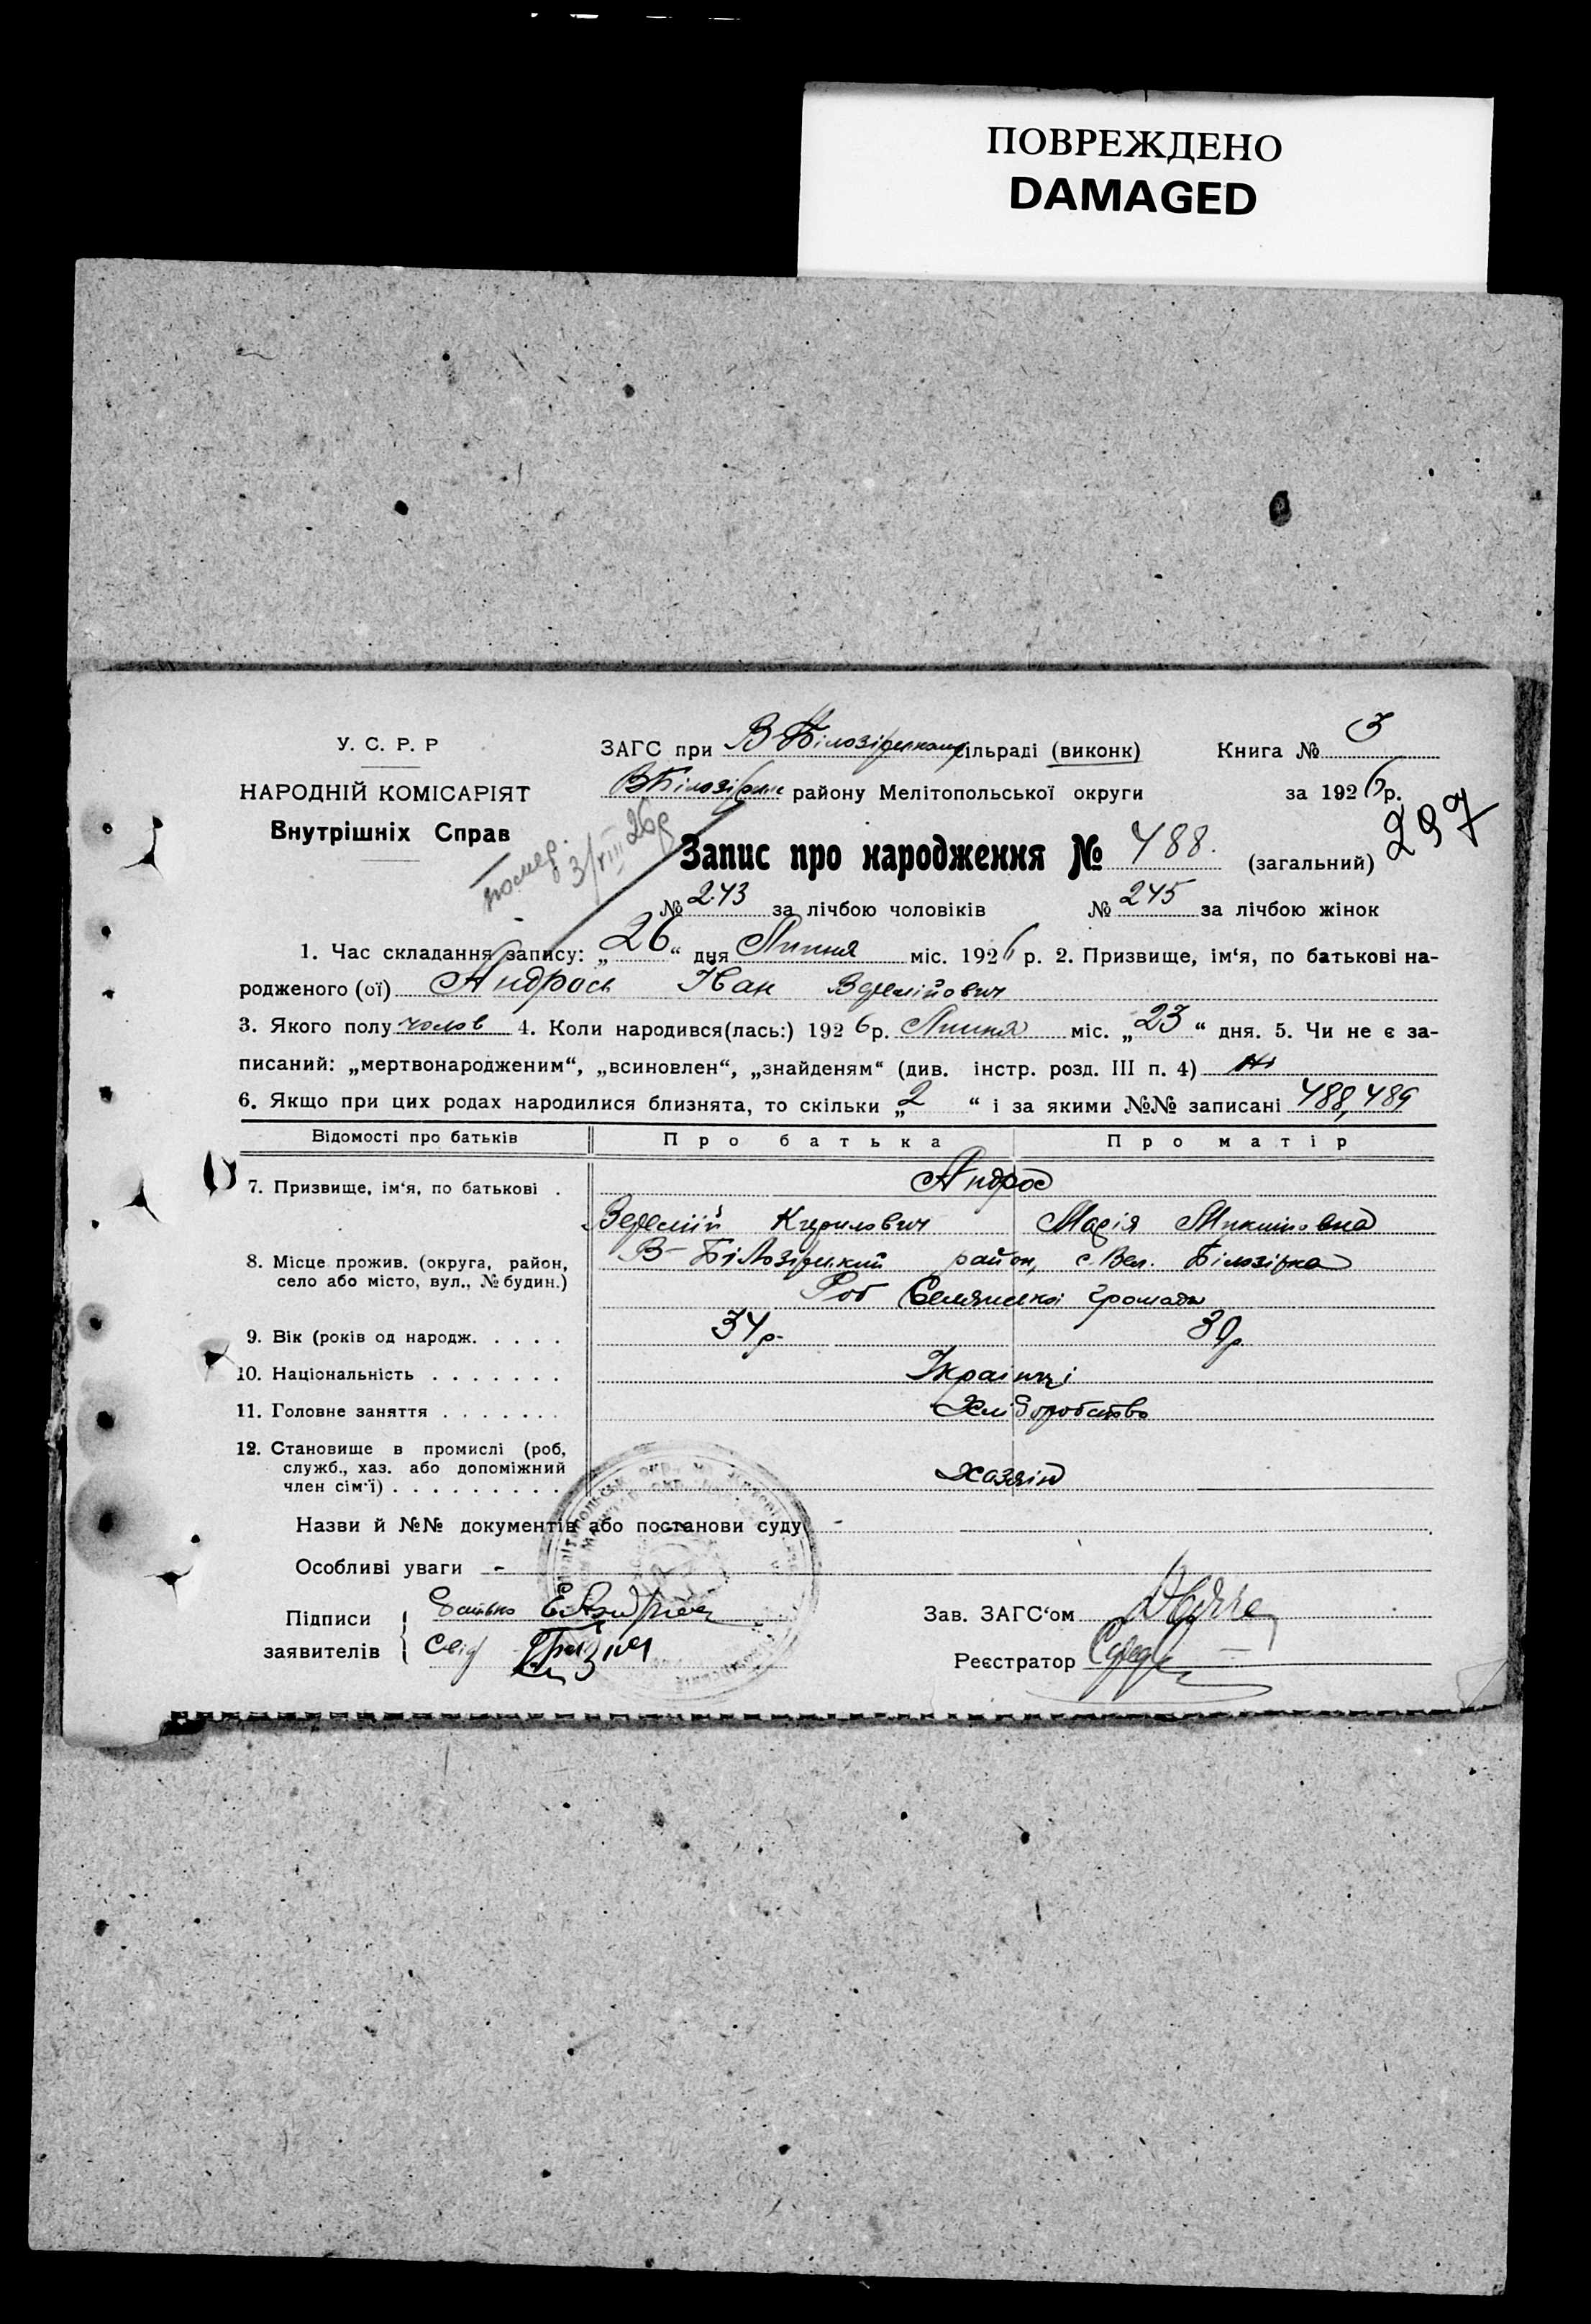 ПОВРЕЖДЕНО
DAMAGED
У. С. Р. Р
НАРОДНІЙ КОМІСАРІЯТ
Внутрішніх Справ
ЗАГС при В-Білозірському сільраді (виконк)
Книга № 3
В Білозірськ району Мелітопольської округи
за 1926 р.
297
помер. 3/VIII 26 р
Запис про народження № 488. (загальний)
№ 243 за лічбою чоловіків № 245 за лічбою жінок
1. Час складання запису: „26“ дня Липня міс. 1926 р. 2. Призвище, ім‘я, по батькові на-
родженого (ої) Андрось Іван Веремійович
3. Якого полу чолов 4. Коли народився(лась:) 1926 р. Липня міс. „23“ дня. 5. Чи не є за-
писаний: „мертвонародженим“, „всиновлен“, „знайденям“ (див. інстр. розд. III п. 4) Ні
6. Якщо при цих родах народилися близнята, то скільки „2“ і за якими №№ записані 488, 489
Відомості про батьків Про батька Про матір
7. Призвище, ім‘я, по батькові . Андрос
Веремій Кирилович Марія Микитовна
8. Місце прожив. (округа, район, село або місто, вул., № будин.) В-Білозірський район, с. Вел. Білозірка
Роб Селянської Громади
9. Вік (років од народж. . . . . 34 р. 30 р
10. Національність . . . . . . . Українці
11. Головне заняття . . . . . . . Хліборобство
12. Становище в промислі (роб,
служб., хаз. або допоміжний
член сім‘ї) . . . . . . . . . Хазяїн
Назви й №№ документів або постанови суду -
Особливі уваги -
Підписи
заявителів
батько Е. Андрось
Свід
Зав. ЗАГС‘ом
Реєстратор